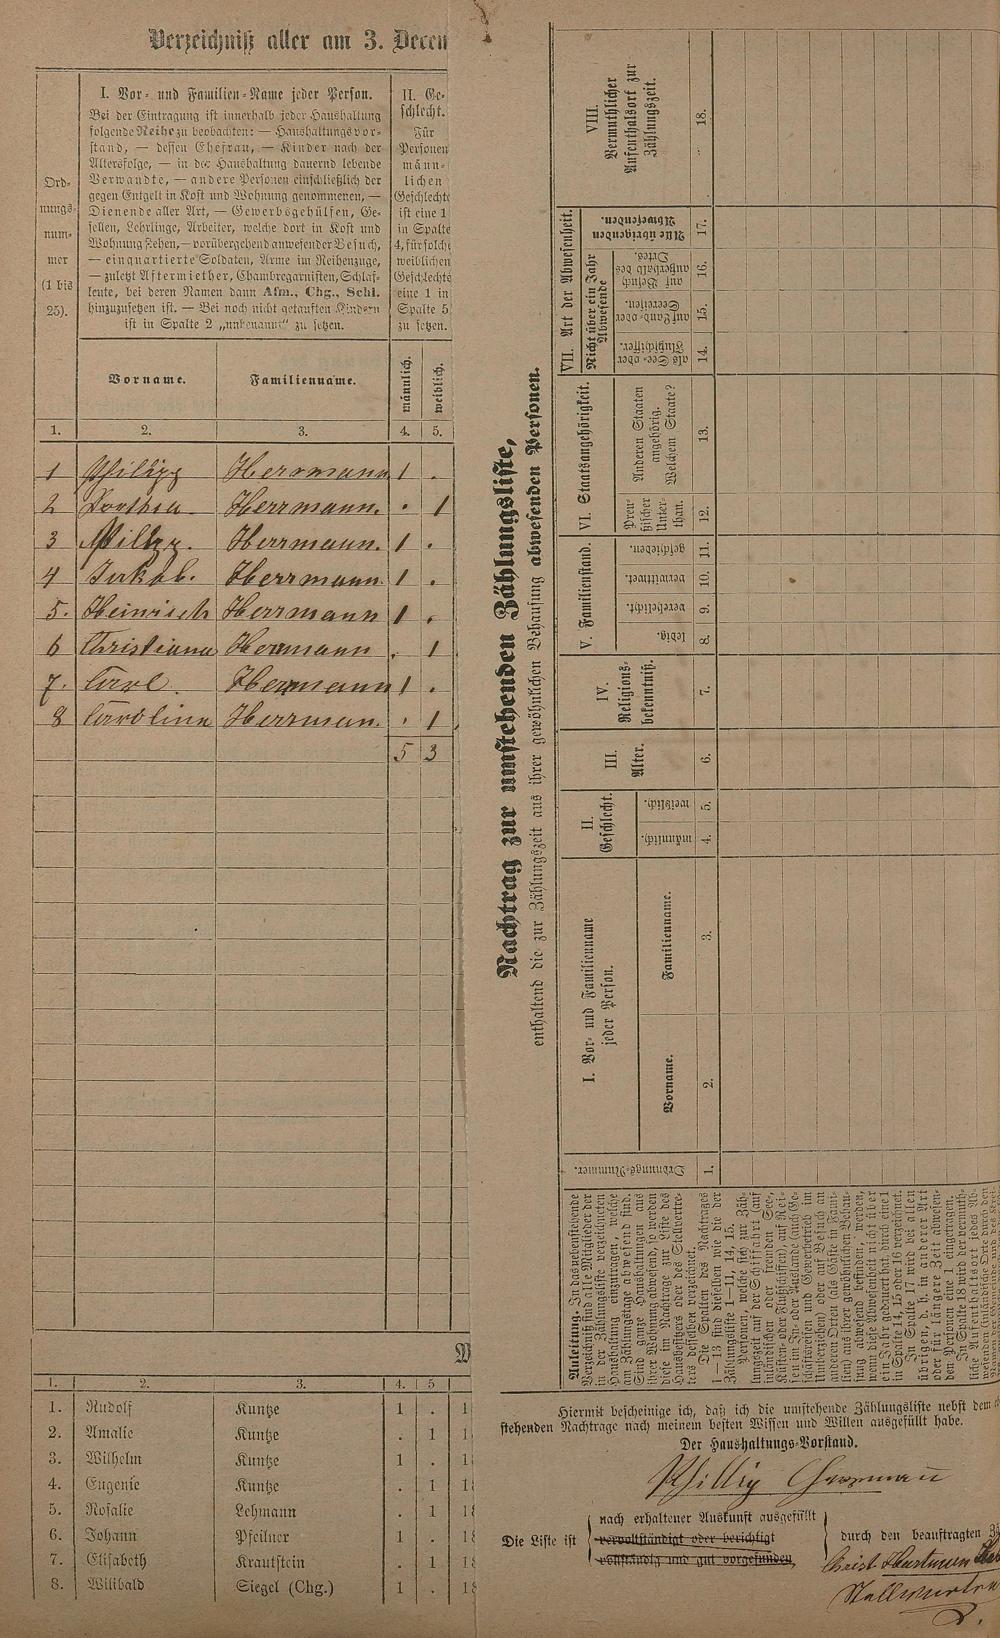 Verzeichniß aller am 3. Decem
Ord-
nungs-
num-
mer
(1 bis
25).
I. Vor- und Familien-Name jeder Person.
Bei der Eintragung ist innerhalb jeder Haushaltung
folgende Reihe zu beobachten: — Haushaltungsvor-
stand, — dessen Ehefrau, — Kinder nach der
Altersfolge, — in der Haushaltung dauernd lebende
Verwandte, — andere Personen einschließlich der
gegen Entgelt in Kost und Wohnung genommenen, —
Dienende aller Art, — Gewerbsgehülfen, Ge-
sellen, Lehrlinge, Arbeiter, welche dort in Kost und
Wohnung stehen, — vorübergehend anwesender Besuch,
— einquartierte Soldaten, Arme im Reihenzuge,
— zuletzt Aftermiether, Chambregarnisten, Schlaf-
leute, bei deren Namen dann Afm., Chg., Schl.
hinzuzusetzen ist. — Bei noch nicht getauften Kindern
ist in Spalte 2 „unbenannt“ zu setzen.
II. Ge-
schlecht.
Für
Personen
männ-
lichen
Geschlechts
ist eine 1
in Spalte
4, für solche
weiblichen
Geschlechts
eine 1 in
Spalte 5
zu setzen.
Vorname. Familienname. männlich. weiblich.
1. 2. 3. 4. 5.
1 Philipp Herrmann 1 .
2 Dorthea Herrmann. . 1
3 Philipp. Herrmann. 1 .
4 Jakob. Herrmann 1 .
5. Heinrich Herrmann 1 .
6 Christiana Herrmann . 1
7. Carl. Herrmann 1 .
8 Carolina Herrman. . 1
5 3
M
1. 2. 3. 4. 5
1. Rudolf Kuntze 1 . 1
2. Amalie Kuntze . 1 1
3. Wilhelm Kuntze 1 . 1
4. Eugenie Kuntze . 1 1
5. Rosalie Lehmann . 1 18
6. Johann Pfeilner 1 . 18
7. Elisabeth Krautstein . 1 18
8. Willibald Siegel (Chg.) 1 . 18
Nachtrag zur umstehenden Zählungsliste,
enthaltend die zur Zählungszeit aus ihrer gewöhnlichen Behausung abwesenden Personen.
Ordnungs-Nummer.
I. Vor- und Familienname
jeder Person.
Vorname. Familienname.
II.
Geschlecht.
männlich. weiblich.
III.
Alter.
IV.
Religions-
bekenntniß.
V. Familienstand.
ledig. verehelicht. verwittwet. geschieden.
VI. Staatsangehörigkeit.
Preu-
ßischer
Unter-
than.
Anderen Staaten
angehörig.
Welchem Staate?
VII. Art der Abwesenheit.
Nicht über ein Jahr
Abwesende
als See- oder
Flußschiffer.
auf Land- oder
Seereisen.
auf Besuch
außerhalb des
Ortes.
Alle übrigen
Abwesenden.
VIII.
Vermuthlicher
Aufenthalsort zur
Zählungszeit.
1. 2. 3. 4. 5. 6. 7. 8. 9. 10. 11. 12. 13. 14. 15. 16. 17. 18.
Anleitung. In das nebenstehende
Verzeichniß sind alle Mitglieder der
in der Zählungsliste verzeichneten
Haushaltung einzutragen, welche
am Zählungstage abwesend sind.
Sind ganze Haushaltungen aus
ihrer Wohnung abwesend, so werden
diese im Nachtrage zur Liste des
Hausbesitzers oder des Stellvertre-
ters desselben verzeichnet.
Die Spalten des Nachtrages
1—13 sind dieselben wie die der
Zählungsliste 1—11, 14, 15.
Personen, welche sich zur Zäh-
lungszeit auf der Schiffahrt (auf
inländischen oder fremden See-,
Küsten- oder Flußschiffen), auf Rei-
sen im In- oder Auslande (auch Ge-
schäftsreisen und Gewerbetrieb im
Umherziehen) oder auf Besuch an
anderen Orten (als Gäste in Fami-
lien) aus ihrer gewöhnlichen Behau-
sung abwesend befinden, werden,
wenn diese Abwesenheit nicht über
ein Jahr gedauert hat, durch eine 1
in Spalte 14, 15 oder 16 verzeichnet.
In Spalte 17 wird bei allen
übrigen, d. h. in anderer Art
oder für längere Zeit abwesen-
den Personen eine 1 eingetragen.
In Spalte 18 wird der vermuth-
liche Aufenthaltsort jedes Ab-
wesenden (inländische Orte durch den
Hiermit bescheinige ich, daß ich die umstehende Zählungsliste nebst dem
stehenden Nachtrage nach meinem besten Wissen und Willen ausgefüllt habe.
Der Haushaltungs-Vorstand.
Phillip Herrmann
Die Liste ist
nach erhaltener Auskunft ausgefüllt
vervollständigt oder berichtigt
vollständig und gut vorgefunden,
durch den beauftragten
Christ. Hartmann